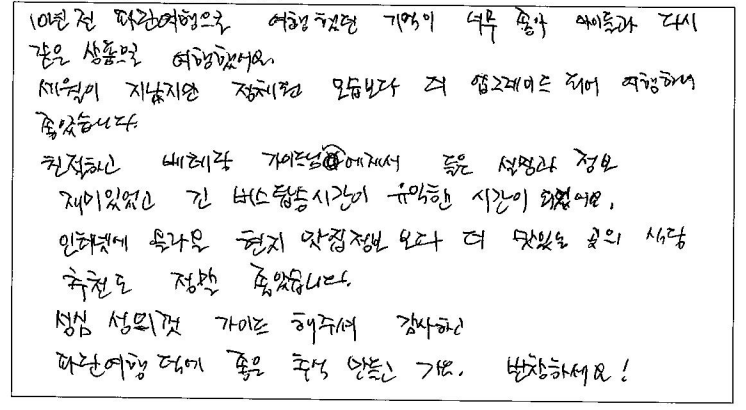 10년 전 파란여행으로 여행했던 기억이 너무 좋아 아이들과 다시
같은 상품으로 여행했어요.
세월이 지났지만 정체된 모습보다 더 업그레이드 되어 여행하니
좋았습니다.
친절하고 베테랑 가이드님에게서 들은 설명과 정보
재미있었고 긴 버스탑승시간이 유익한 시간이 되었어요.
인터넷에 올라온 현지 맛집정보 보다 더 맛있는 곳의 식당
추천도 정말 좋았습니다.
성심 성의껏 가이드 해주셔 감사하고
파란여행 덕에 좋은 추억 만들고 가요. 번창하세요!